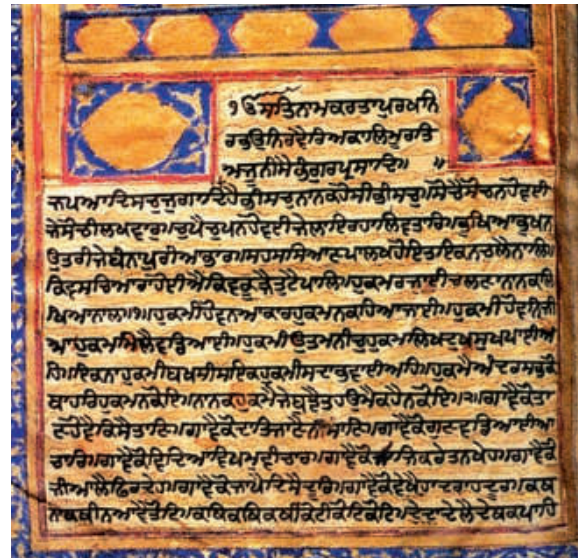 ੴਸਤਿਨਾਮਕਰਤਾਪੁਰਖਨਿ
ਰਭਉਨਿਰਵੈਰਿਅਕਾਲਿਮੂਰਤਿ
ਅਜੂਨੀਸੈਭੰਗੁਰਪ੍ਰਸਾਦਿ॥ ॥
ਜਪਆਦਿਸਚੁਜੁਗਾਦਿਹੈਭੀਸਚੁਨਾਨਕਹੋਸੀਭੀਸਚੁ॥ਸੋਚੈਸੋਚਨਹੋਵਈ
ਜੇਸੋਚੀਲਖਵਾਰ॥ਚੁਪੈਚੁਪਨਹੋਵਈਜੇਲਾਇਰਹਾਲਿਵਤਾਰ॥ਭੁਖਿਆਭੁਖਨ
ਉਤਰੀਜੇਬੰਨਾਪੁਰੀਆਭਾਰ॥ਸਹਸਸਿਆਣਪਾਲਖਹੋਇਤਇਕਨਚਲੈਨਾਲਿ॥
ਕਿਵਸਚਿਆਰਾਹੋਈਐਕਿਵਕੂੜੈਤੁਟੈਪਾਲਿ॥ਹੁਕਮਰਜਾਈਚਲਣਾਨਾਨਕਲਿ
ਖਿਆਨਾਲ॥੧॥ਹੁਕਮੀਹੋਵਨਆਕਾਰਹੁਕਮਨਕਹਿਆਜਾਈ॥ਹੁਕਮੀਹੋਵਨਿਜੀ
ਆਹੁਕਮਿਮਿਲੈਵਡਿਆਈ॥ਹੁਕਮੀਉਤਮਨੀਚੁਹੁਕਮਿਲਿਖਦੁਖਸੁਖਪਾਈਅ
ਹਿ॥ਇਕਨਾਹੁਕਮੀਬਖਸੀਸਇਕਹੁਕਮੀਸਦਾਭਵਾਈਅਹਿ॥ਹੁਕਮੈਅੰਦਰਸਭਕੋ
ਬਾਹਰਿਹੁਕਮਨਕੋਇ॥ਨਾਨਕਹੁਕਮੈਜੇਬੁਝੈਤਹਉਮੈਕਹੈਨਕੋਇ॥੨॥ਗਾਵੈਕੋਤਾ
ਣਹੋਵੈਕਿਸੈਤਾਣਿ॥ਗਾਵੈਕੋਦਾਤਿਜਾਣੈਨੀਸਾਣਿ॥ਗਾਵੈਕੋਗੁਣਵਡਿਆਈਆ
ਚਾਰ॥ਗਾਵੈਕੋਵਿਦਿਆਵਿਖਮਵੀਚਾਰ॥ਗਾਵੈਕੋਸਾਜਿਕਰੇਤਨਖੇਹ॥ਗਾਵੈਕੋ
ਜੀਆਲੈਫਿਰਦੇਹ॥ਗਾਵੈਕੋਜਾਪੈਦਿਸੈਦੂਰਿ॥ਗਾਵੈਕੋਵੇਖੈਹਾਦਰਾਹਦੂਰ॥ਕਥ
ਨਾਕਥੀਨਆਵੈਤੋਟਿ॥ਕਥਿਕਥਿਕਥੀਕੋਟੀਕੋਟਿਕੋਟਿ॥ਦੇਦਾਦੇਲੈਦੇਥਕਪਾਹਿ